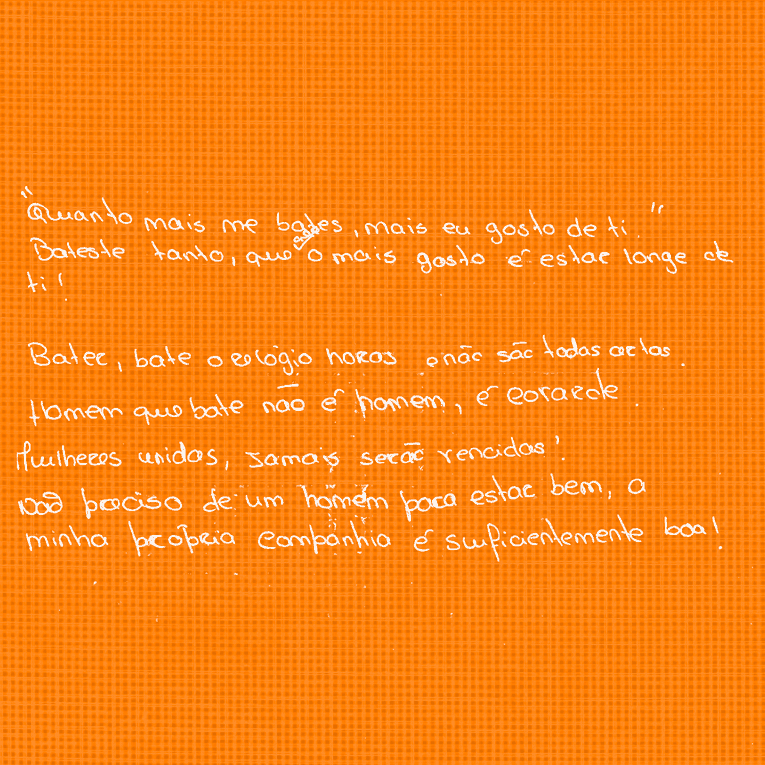 "Quanto mais me bates, mais eu gosto de ti."
Bateste tanto, que o mais gosto é estar longe de
ti!
Bater, bate o relógio horas e não são todas certas.
Homem que bate não é homem, é covarde.
Mulheres unidas, jamais serão vencidas!
Não preciso de um homem para estar bem, a
minha própria companhia é suficientemente boa!